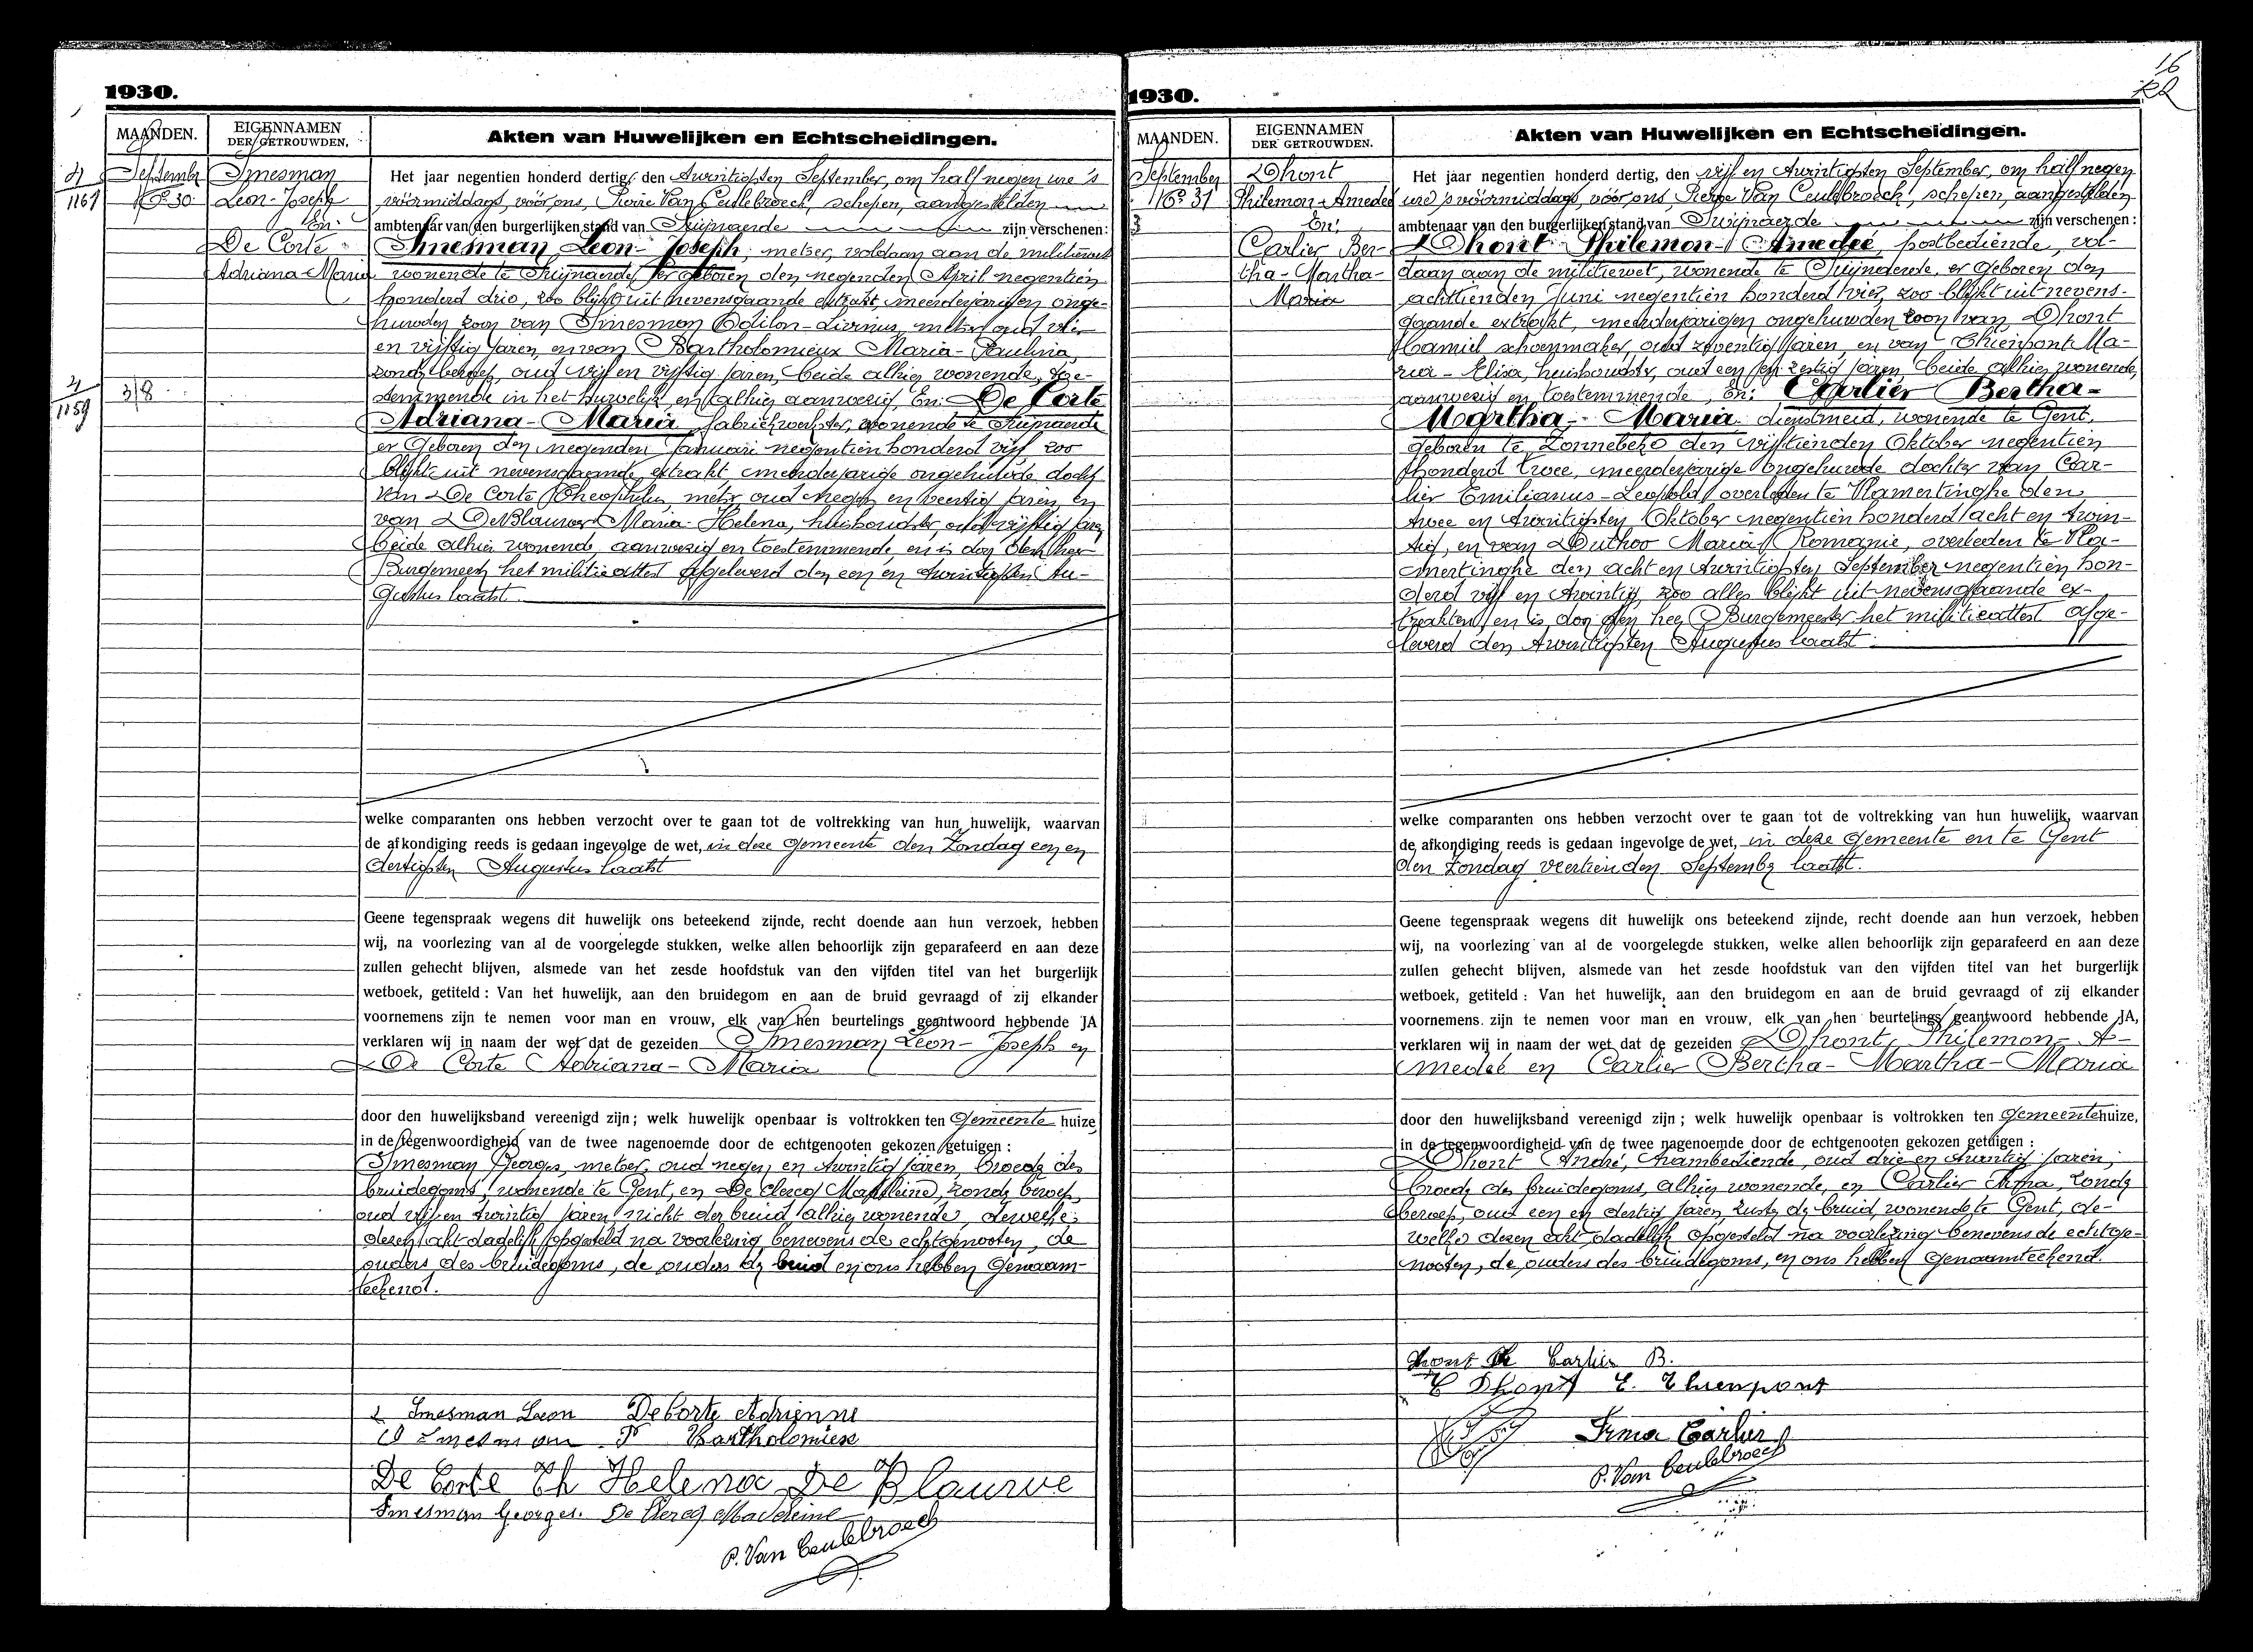 1930.
MAANDEN.
EIGENNAMEN
DER GETROUWDEN.
Akten van Huwelijken en Echtscheidingen.
2/1161
September
No 30
Smesman
Leon-Joseph
En:
De Corte
Adriana-Maria
2/1159
3/8
Het jaar negentien honderd dertig, den twintigsten September, om half negen ure 's
voormiddags, vóór ons, Pierre Van Ceulebroeck, schepen, aangestelden
ambtenaar van den burgerlijken stand van Swijnaerde zijn verschenen:
Smesman Leon-Joseph, metser, voldaan aan de militiewet
wonende te Swijnaerde, er geboren den negenden April negentien
honderd drie, zoo blijkt uit nevensgaande extrakt, meerderjarigen onge-
huwden zoon van Smesman Odilon-Livinus, metser, oud vier
en vijftig jaren, en van Bartholomieux Maria-Paulina,
zonder beroep, oud vijf en vijftig jaren, beide alhier wonende, toe-
stemmende in het huwelijk en alhier aanwezig, En: De Corte
Adriana-Maria, fabriekwerkster, wonende te Swijnaerde
er geboren den negenden Januari negentien honderd vijf, zoo
blijkt uit nevensgaande extrakt, meerderjarige ongehuwde docht
van De Corte Theophilus, metser oud negen en veertig jaren, en
van De Blauwe Maria-Helena, huishoudster, oud vijftig jaren
beide alhier wonende, aanwezig en toestemmende, en is door den heer
Burgemeester het militieattest afgeleverd den een en twintigsten Au-
gustus laatst
welke comparanten ons hebben verzocht over te gaan tot de voltrekking van hun huwelijk, waarvan
de afkondiging reeds is gedaan ingevolge de wet, in deze Gemeente den Zondag een en
dertigsten Augustus laatst
Geene tegenspraak wegens dit huwelijk ons beteekend zijnde, recht doende aan hun verzoek, hebben
wij, na voorlezing van al de voorgelegde stukken, welke allen behoorlijk zijn geparafeerd en aan deze
zullen gehecht blijven, alsmede van het zesde hoofdstuk van den vijfden titel van het burgerlijk
wetboek, getiteld : Van het huwelijk, aan den bruidegom en aan de bruid gevraagd of zij elkander
voornemens zijn te nemen voor man en vrouw, elk van hen beurtelings geantwoord hebbende JA
verklaren wij in naam der wet dat de gezeiden Smesman Leon-Joseph en
De Corte Adriana-Maria
door den huwelijksband vereenigd zijn ; welk huwelijk openbaar is voltrokken ten Gemeente huize
in de tegenwoordigheid van de twee nagenoemde door de echtgenooten gekozen getuigen :
Smesman Georges, metser, oud negen en twintig jaren, broeder des
bruidegoms, wonende te Gent, en De Clercq Madeleine, zonder beroep,
oud vijf en twintig jaren nicht der bruid, alhier wonende, dewelke
dezen akt dadelijk opgesteld na voorlezing benevens de echtgenooten, de
ouders des bruidegoms, de ouders der bruid en ons hebben Genaam-
teekend.
Smesman Leon De Corte Adrienne
O Smesman P Bartholomieux
De Corte Th Helena De Blauwe
Smesman Georges. De Clercq Madeleine
P. Van Ceulebroeck
16
1930.
MAANDEN.
EIGENNAMEN
DER GETROUWDEN.
Akten van Huwelijken en Echtscheidingen.
September
No 31
Dhont
Philemon-Amedee
En:
Carlier Ber-
tha-Martha-
Maria
Het jaar negentien honderd dertig, den vijf en twintigsten September, om half negen
ure 's voormiddags, vóór ons Pierre Van Ceulebroeck, schepen, aangestelden
ambtenaar van den burgerlijken stand van Swijnaerde zijn verschenen :
Dhont Philemon-Amedée, postbediende, vol-
daan aan de militiewet, wonende te Swijnaerde, er geboren den
achttienden Juni negentien honderd vier, zoo blijkt uit nevens-
gaande extrakt, meerderjarigen ongehuwden zoon van Dhont
Kamiel schoenmaker, oud zeventig jaren, en van Thienpont Ma-
ria-Elisa, huishoudster, oud een en zestig jaren, beide alhier wonende,
aanwezig en toestemmende, En: Carlier Bertha-
Martha-Maria dienstmeid, wonende te Gent,
geboren te Zonnebeke den vijftienden Oktober negentien
honderd twee, meerderjarige ongehuwde dochter van Car-
lier Emilianus-Leopold, overleden te Vlamertinghe den
twee en twintigsten Oktober negentien honderd acht en twin-
tig, en van Duthoo Maria-Romanie, overleden te Vla-
mertinghe den acht en twintigsten September negentien hon-
derd vijf en twintig, zoo alles blijkt uit nevensgaande ex-
trakten, en is door den heer Burgemeester het militieattest afge-
leverd den twintigsten Augustus laatst
welke comparanten ons hebben verzocht over te gaan tot de voltrekking van hun huwelijk, waarvan
de afkondiging reeds is gedaan ingevolge de wet, in deze Gemeente en te Gent
den Zondag veertienden September laatst.
Geene tegenspraak wegens dit huwelijk ons beteekend zijnde, recht doende aan hun verzoek, hebben
wij, na voorlezing van al de voorgelegde stukken, welke allen behoorlijk zijn geparafeerd en aan deze
zullen gehecht blijven, alsmede van het zesde hoofdstuk van den vijfden titel van het burgerlijk
wetboek, getiteld : Van het huwelijk, aan den bruidegom en aan de bruid gevraagd of zij elkander
voornemens zijn te nemen voor man en vrouw, elk van hen beurtelings geantwoord hebbende JA,
verklaren wij in naam der wet dat de gezeiden Dhont Philemon-A-
medeé en Carlier Bertha-Martha-Maria
door den huwelijksband vereenigd zijn ; welk huwelijk openbaar is voltrokken ten Gemeentehuize,
in de tegenwoordigheid van de twee nagenoemde door de echtgenooten gekozen getuigen :
Dhont André, trambediende, oud drie en twintig jaren,
broeder des bruidegoms, alhier wonende, en Carlier Irma, zonder
beroep, oud een en dertig jaren, zuster der bruid, wonende te Gent, de-
welke dezen akt dadelijk opgesteld na voorlezing benevens de echtge-
nooten, de ouders des bruidegoms, en ons hebben Genaamteekend.
Dhont Ph Carlier B.
C Dhont E. Thienpont
Irma Carlier
P. Van Ceulebroeck